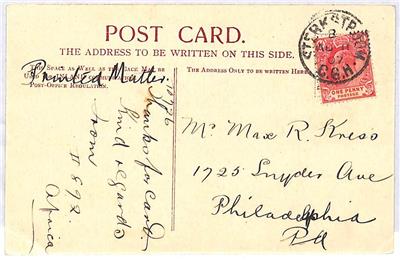 POST CARD.
THE ADDRESS TO BE WRITTEN ON THIS SIDE.
This Space as Well as the Back may be
Post-Office Regulation.
The Address Only to be Written Here
Printed Matter.
Thanks for Card
Kind regards
from
11892.
Africa
STERKSTROOM
C.G.H.
ONE PENNY
POSTAGE
Mr Max R. Kress
1725 Snyder Ave
Philadelphia
Pa